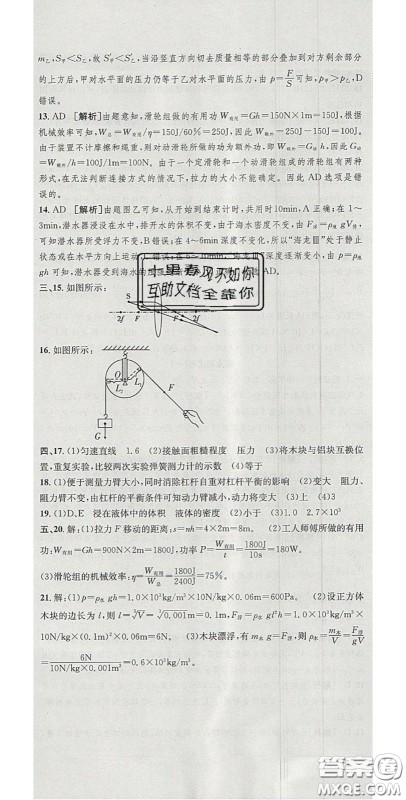 m乙,S甲<S乙,故S甲′<S乙′,当沿竖直方向切去质量相等的部分叠加到对方剩余部
的上方后,甲对水平面的压力仍等于乙对水平面的压力,由p=F/S可知,p甲>p乙,D
错误。
13. AD 【解析】由题意知,滑轮组做的有用功W有用=Gh=150N×1m=150J,根
据机械效率可知,W总=W有用/η=150J/60%=250J,W额外=W总-W有用=250J-150J=100J,
由于装置不计摩擦和绳重,则克服动滑轮所做的功为额外功,即W额外=G动h,因此G动
=W额外/h=100J/1m=100N。由于一个定滑轮和一个动滑轮组成的滑轮组有两种
形式,在无法判断连接方式的情况下,拉力的大小不能确定。因此AD选项是错
误的。
14. AD 【解析】由题图乙可知,从开始到结束计时,共用时10min,A正确;在1~
3min,潜水器在水中,排开水的体积不变,由于海水密度不变,由F浮=ρ水gV排,
可知潜水器所受浮力不变,B错误;在4~6min深度不变化,所以“海龙Ⅲ”处于静止
状态或水平方向上运动,C错误;在6~10min,“海龙Ⅲ”所处深度逐渐变小,由p=
ρgh可知,潜水器受到海水的压强逐渐变小,D正确。
三、15. 如图所示:
S
2f f F 2f
16. 如图所示:
O
L₁ L₂ F
G
四、17. (1)匀速直线 1.6 (2)接触面粗糙程度 压力 (3)将木块与铝块互换位
置,重复实验,比较两次实验弹簧测力计的示数 (4)等于
18. (1)便于测量力臂大小,同时消除杠杆自重对杠杆平衡的影响 (2)变大 阻力、
阻力臂不变,由杠杆的平衡条件可知动力臂减小,动力将变大 (3)上 (4)3
19. (1)D、E 浸在液体中的体积 液体的密度 (2)不变 (3)2 (4)大
五、20. 解:(1)拉力F移动的距离:s=nh=4×2m=8m。 (2)工人师傅所做的有用
功:W有用=Gh=900N×2m=1800J,功率P=W有用/t=1800J/10s=180W。
(3)滑轮组的机械效率:η=W有用/W总=1800J/2400J=75%。
21. 解:(1)p=ρ水gh=10N/kg×0.1×10³kg/m³×0.06m=600Pa。 (2)设正方体
木块的边长为l,则l=³√V=³√0.001m=0.1m,则F浮=ρ水gl²h=1.0×10³kg/m³×
10N/kg×(0.1m)²×0.06m=6N。 (3)木块漂浮,有m木g=F浮,则ρ木=m木/V=F浮/gV
=6N/(10N/kg×0.001m³)=0.6×10³kg/m³
暑春风不如你
互助文档全靠你
答案圈
MXQE.COM